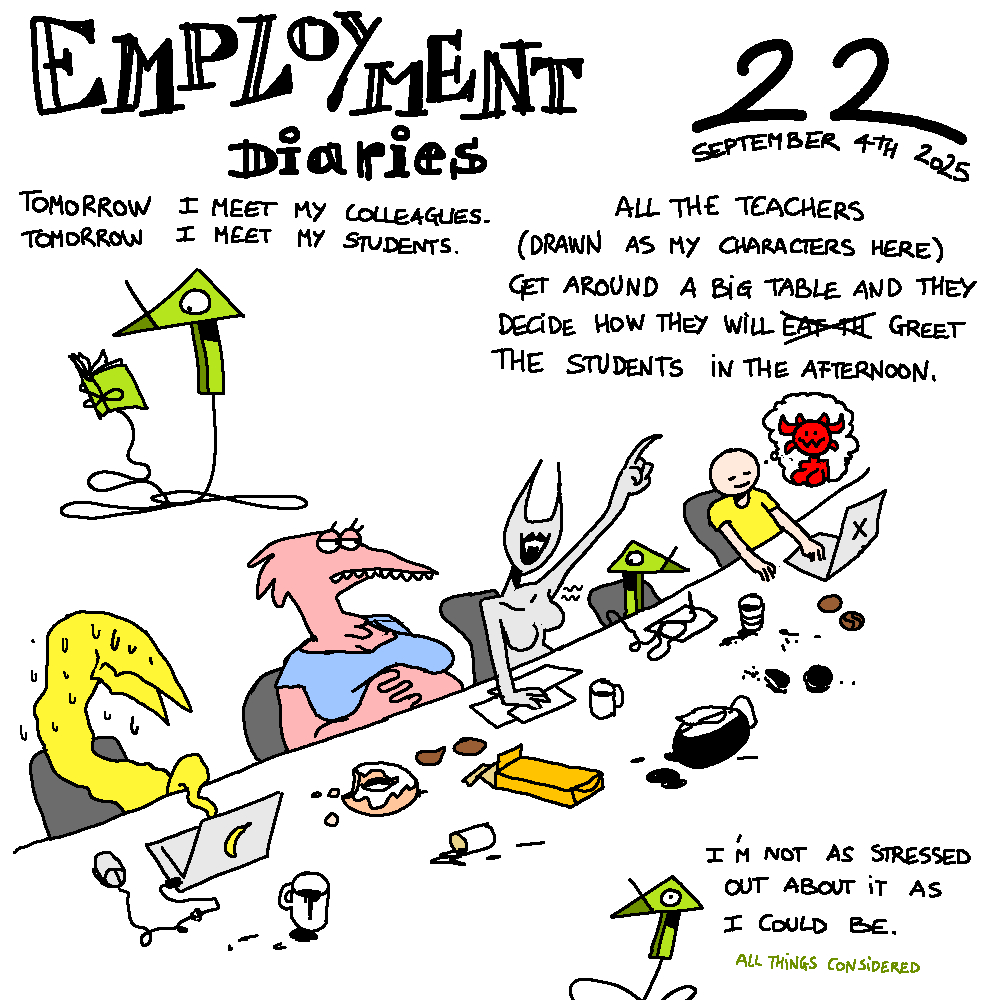 EMPLOYMENT
Diaries
22
SEPTEMBER 4TH 2025
TOMORROW I MEET MY COLLEAGUES.
TOMORROW I MEET MY STUDENTS.
ALL THE TEACHERS
(DRAWN AS MY CHARACTERS HERE)
GET AROUND A BIG TABLE AND THEY
DECIDE HOW THEY WILL EAT TH GREET
THE STUDENTS IN THE AFTERNOON.
X
I'M NOT AS STRESSED
OUT ABOUT IT AS
I COULD BE.
ALL THINGS CONSIDERED